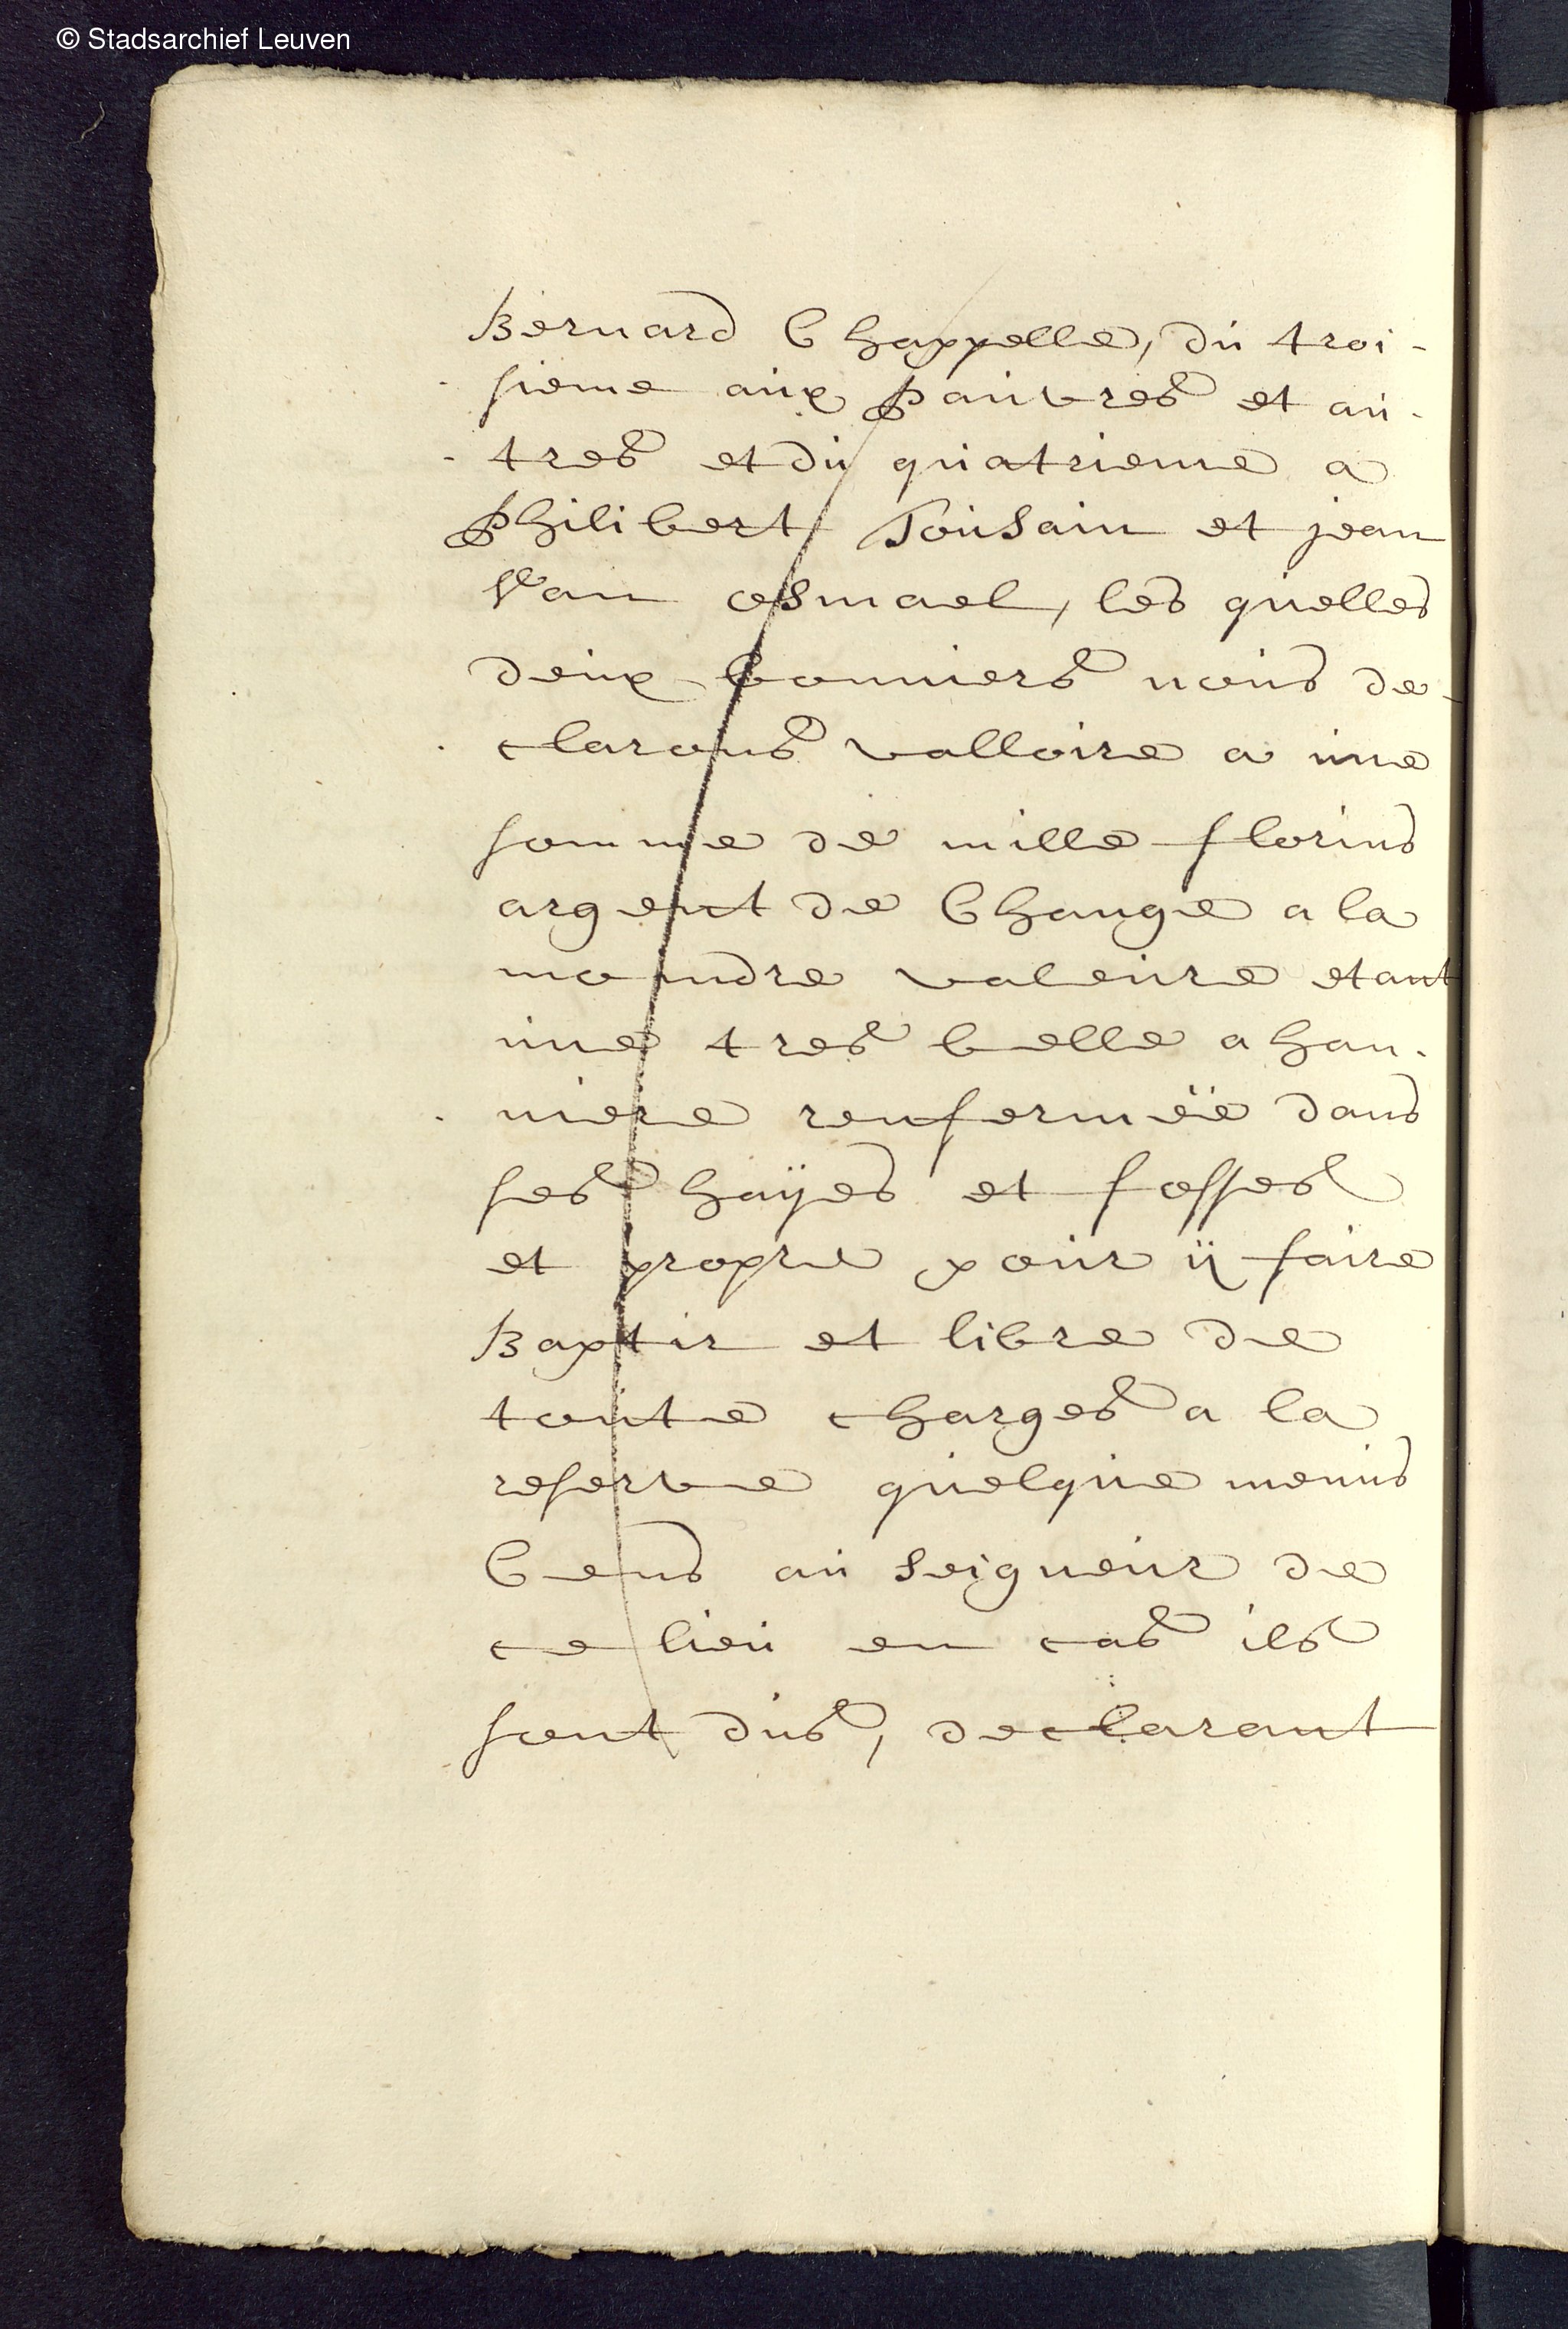 © Stadsarchief Leuven
Bernard Chappelle, du troi-
sieme aux pauvres et au-
tres et du quatrieme a
Philibert Tousain et jean
Van osmael, les quelles
deux bonniers nous de-
clarons valloire a une
somme de mille florins
argent de Change a la
moindre valeure etant
une tres belle ahan-
niere renfermëe dans
ses haÿes et fosses
et propre pour ÿ faire
Baptir et libre de
toute charges a la
reserve quelque menus
Cens au seigneur de
ce lieu en cas ils
sont dus, declarant